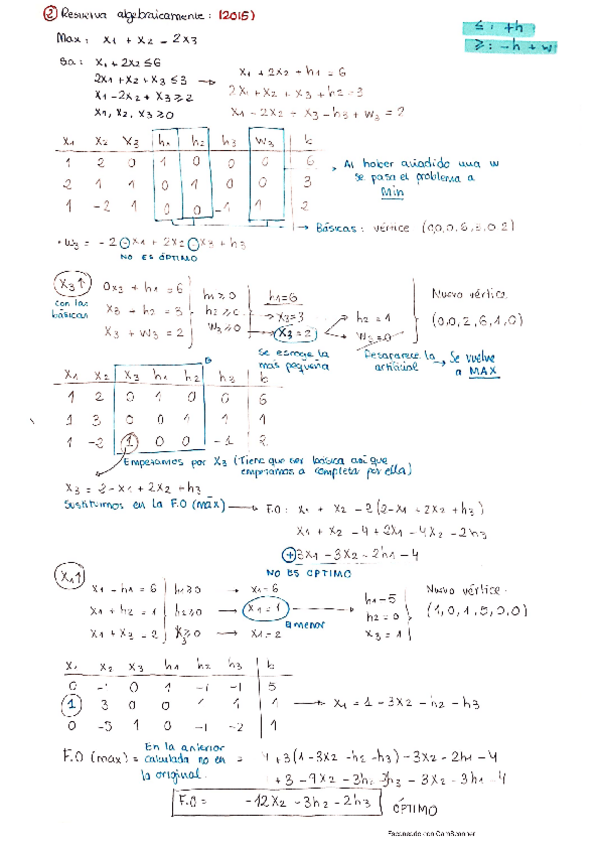 ② Resuelva algebraicamente: (2015)
≤ : +h
≥ : -h + w
Max: x1 + x2 - 2x3
Sa: x1 + 2x2 ≤ 6
2x1 + x2 + x3 ≤ 3 → x1 + 2x2 + h1 = 6
x1 - 2x2 + x3 ≥ 2 2x1 + x2 + x3 + h2 = 3
x1, x2, x3 ≥ 0 x1 - 2x2 + x3 - h3 + w3 = 2
x1 x2 x3 h1 h2 h3 w3 b
1 2 0 1 0 0 0 6
2 1 1 0 1 0 0 3
1 -2 1 0 0 -1 1 2
→ Al haber añadido una w
se pasa el problema a
Min
→ Básicas: vértice (0,0,0,6,3,0,2)
· w3 = -2 - x1 + 2x2 - x3 + h3
NO ES ÓPTIMO
x3↑ 0x3 + h1 = 6
con las
básicas
x3 + h2 = 3
x3 + w3 = 2
h1 ≥ 0
h2 ≥ 0
w3 ≥ 0
h1=6
→ x3=3
→ x3=2
→ h2 = 1
→ w3=0
Nuevo vértice
(0,0,2,6,1,0)
Se escoge la
más pequeña
Desaparece la
artificial
→ Se vuelve
a MAX
x1 x2 x3 h1 h2 h3 b
1 2 0 1 0 0 6
1 3 0 0 1 1 1
1 -2 1 0 0 -1 2
Empezamos por x3 (Tiene que ser básica así que
empezamos a completa por ella)
x3 = 2 - x1 + 2x2 + h3
Sustituimos en la F.O (máx) → F.O: x1 + x2 - 2(2-x1 + 2x2 + h3)
x1 + x2 - 4 + 2x1 - 4x2 - 2h3
+3x1 - 3x2 - 2h3 - 4
NO ES OPTIMO
x1↑
x1 - h1 = 6 h1≥0 → x1=6
x1 + h2 = 1 h2≥0 → x1 = 1
x1 + x3 = 2 x3≥0 → x1=2
El menor
h1=5
h2 = 0
x3 = 1
Nuevo vértice.
(1,0,1,5,0,0)
x1 x2 x3 h1 h2 h3 b
0 -1 0 1 -1 -1 5
1 3 0 0 1 1 1 → x1 = 1 - 3x2 - h2 - h3
0 -5 1 0 -1 -2 1
F.O (max) = En la anterior
calculada no en
la original.
= +3(1-3x2 -h2 -h3) - 3x2 - 2h1 - 4
+3 - 9x2 - 3h2 - 3h3 - 3x2 - 3h1 - 4
F.O = -12x2 - 3h2 - 2h3 ÓPTIMO
Escaneado con CamScanner